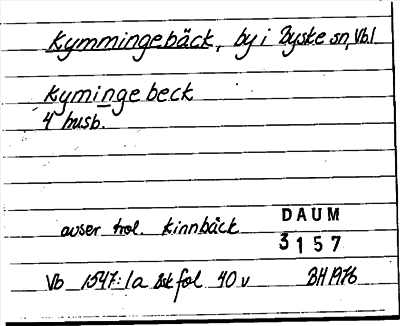 Kymmingebäck, by i Byske sn, Vb.l
Kymingebeck
4 husb.
avser trol. Kinnbäck
DAUM
3157
Vb 1547:1a fol 40 v BH 1976